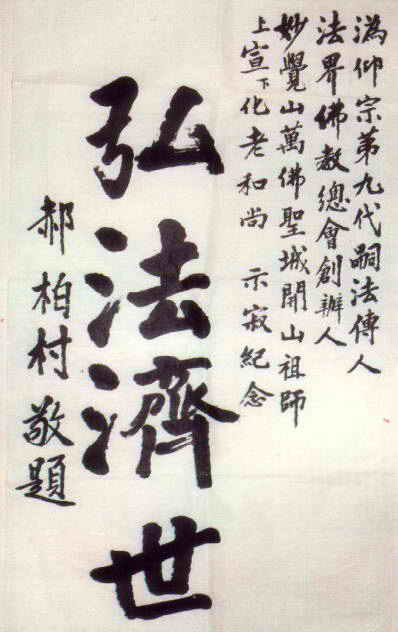 溈仰宗第九代嗣法傳人
法界佛教總會創辦人
妙覺山萬佛聖城開山祖師
上宣下化老和尚 示寂紀念
弘法濟世
郝柏村敬題